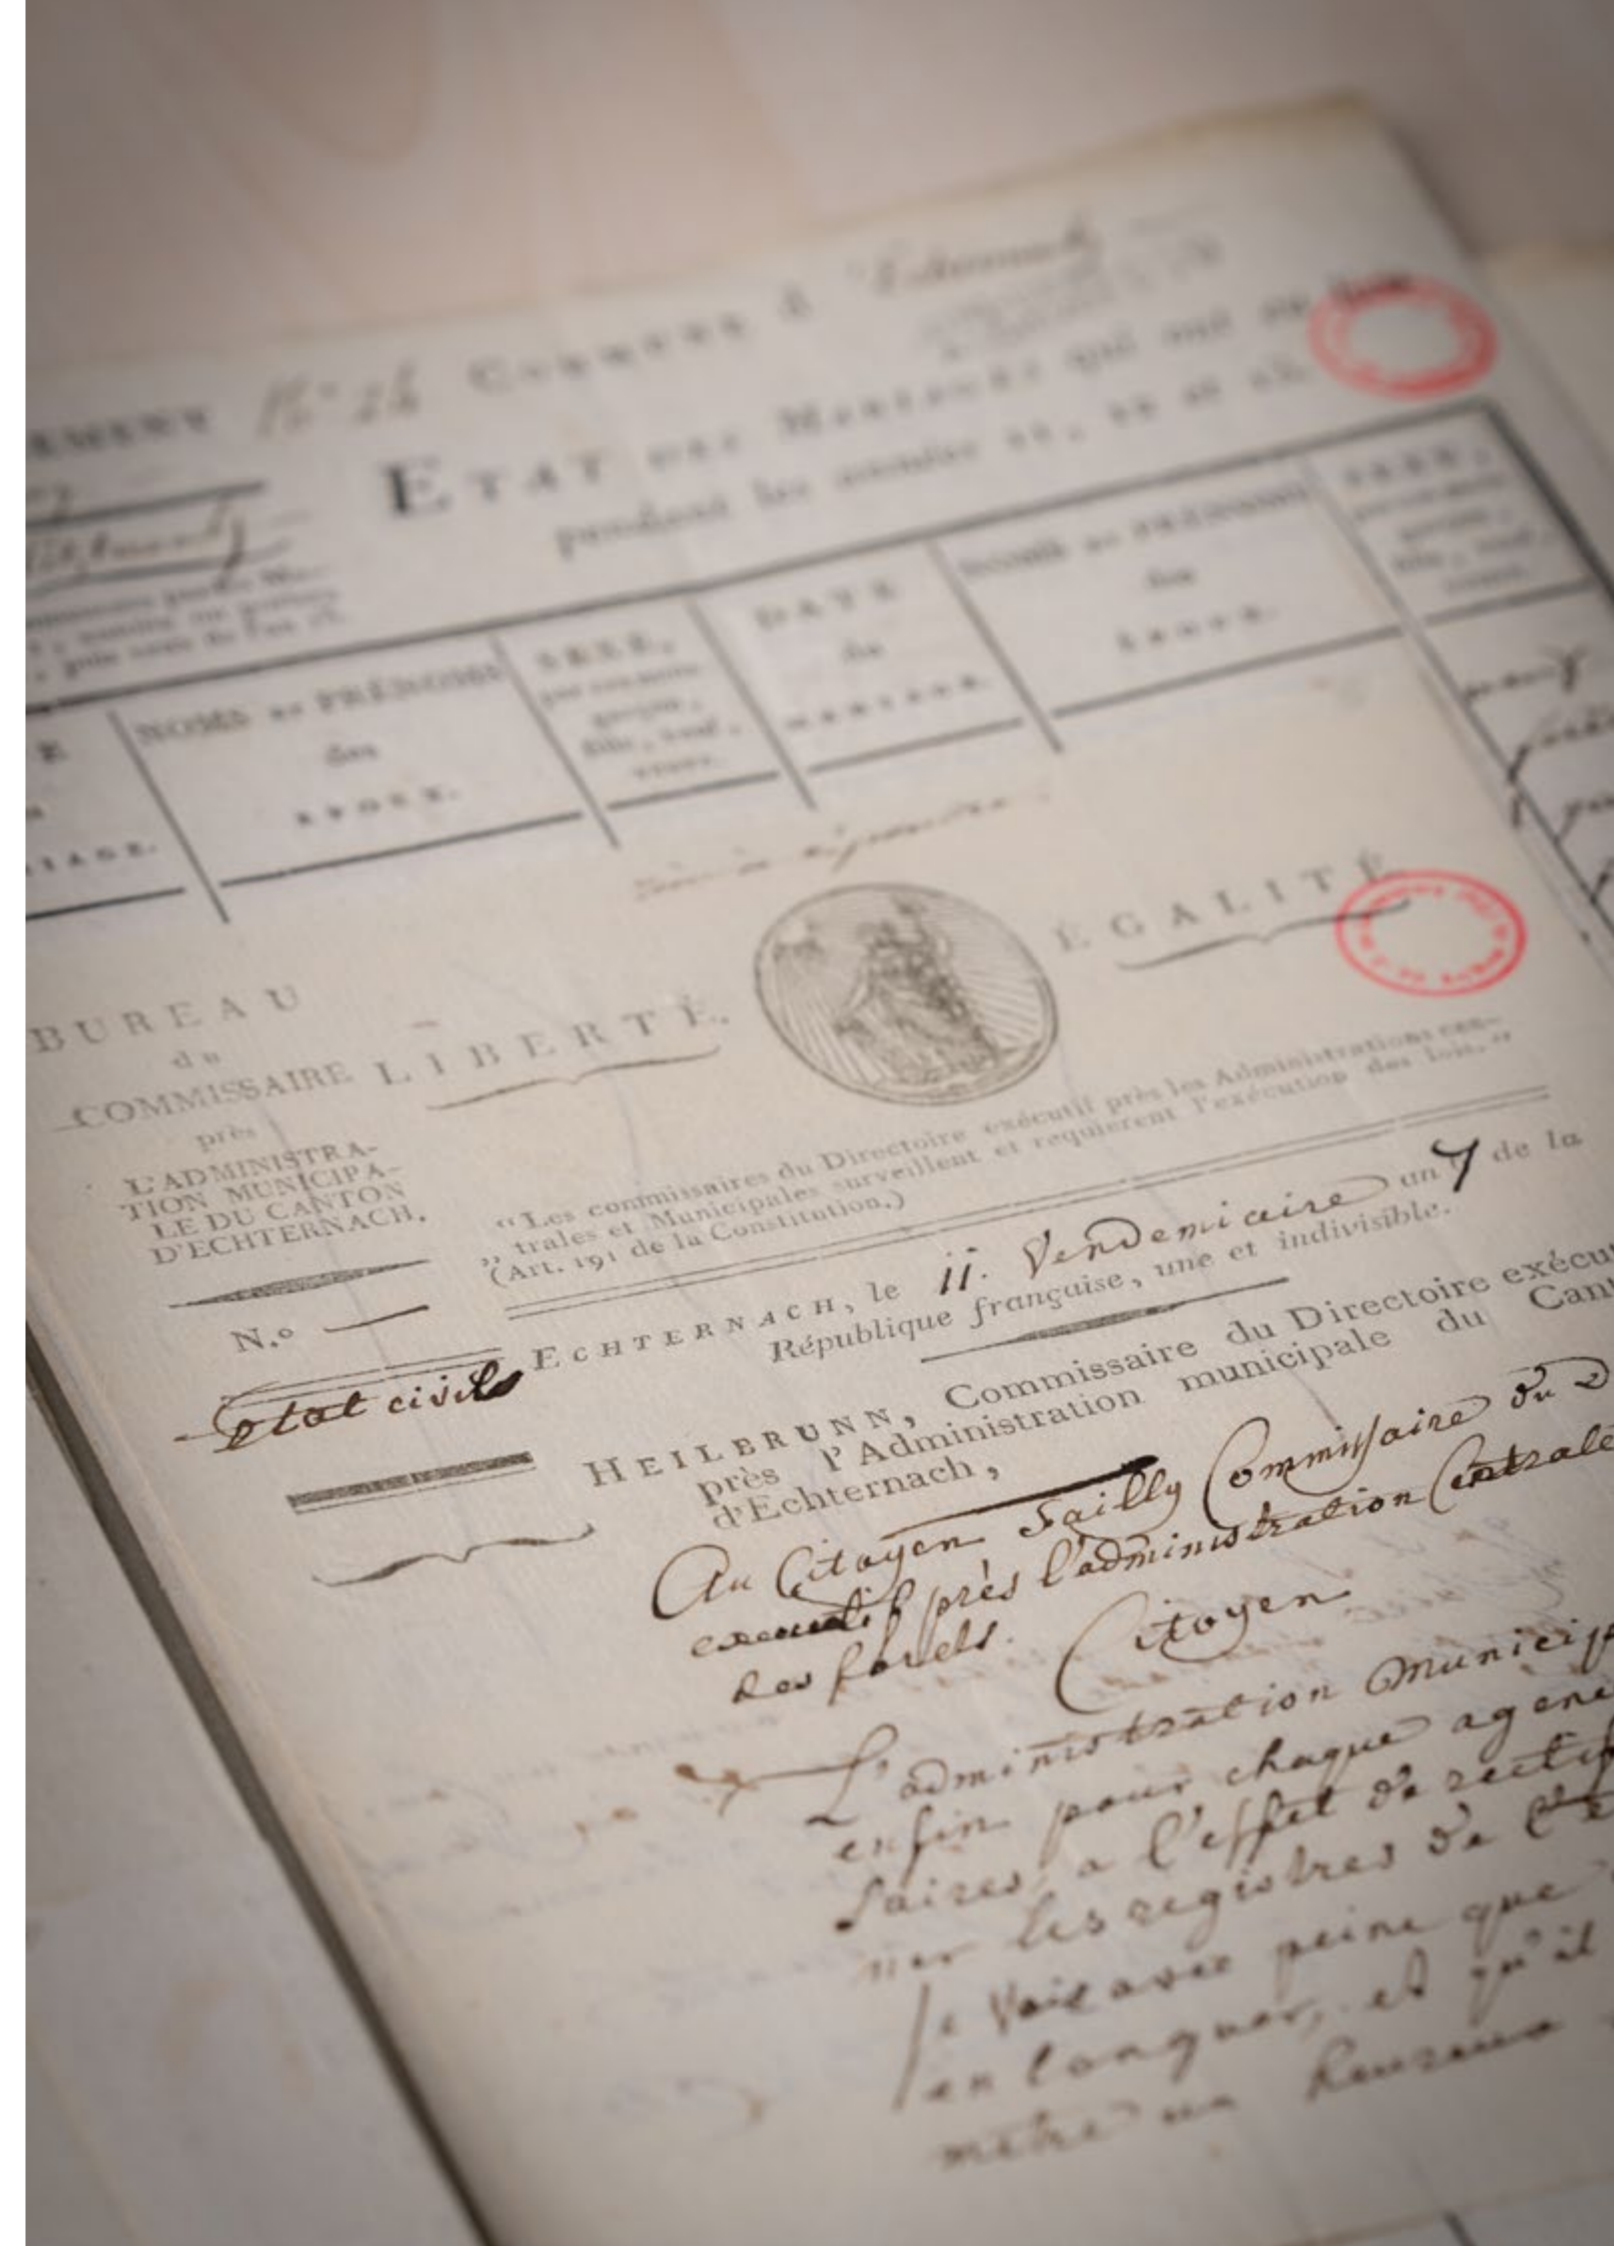 COMMUNE d'Echternach
ÉTAT DES MARIAGES qui ont eu lieu
pendant les années 11, 12 et 13.
NOMS ET PRÉNOMS
des
ÉPOUX.
SEXE,
garçon,
fille, veuf,
veuve.
DATE
du
MARIAGE.
NOMS ET PRÉNOMS
des
ÉPOUX.
SEXE,
garçon,
fille, veuf,
veuve.
BUREAU
du
COMMISSAIRE
près
L'ADMINISTRA-
TION MUNICIPA-
LE DU CANTON
D'ECHTERNACH.
N.º
Etat civile
LIBERTÉ.
ÉGALITÉ
“Les commissaires du Directoire exécutif près les Administrations cen-
„ trales et Municipales surveillent et requierent l'exécution des lois.”
(Art. 191 de la Constitution.)
ECHTERNACH, le 11. Vendemiaire an 7 de la
République française, une et indivisible.
HEILBRUNN, Commissaire du Directoire exécut
près l'Administration municipale du Cant
d'Echternach,
Au Citoyen Failly Commissaire du D
executif près l'administration Centrale
des forets.
Citoyen
L'administration Municip
enfin pour chaque agent
saires, a l'effet de rectif
ner les registres de l'é
Je Vois avec peine que
en longuer, et qu'il
metre un heureux